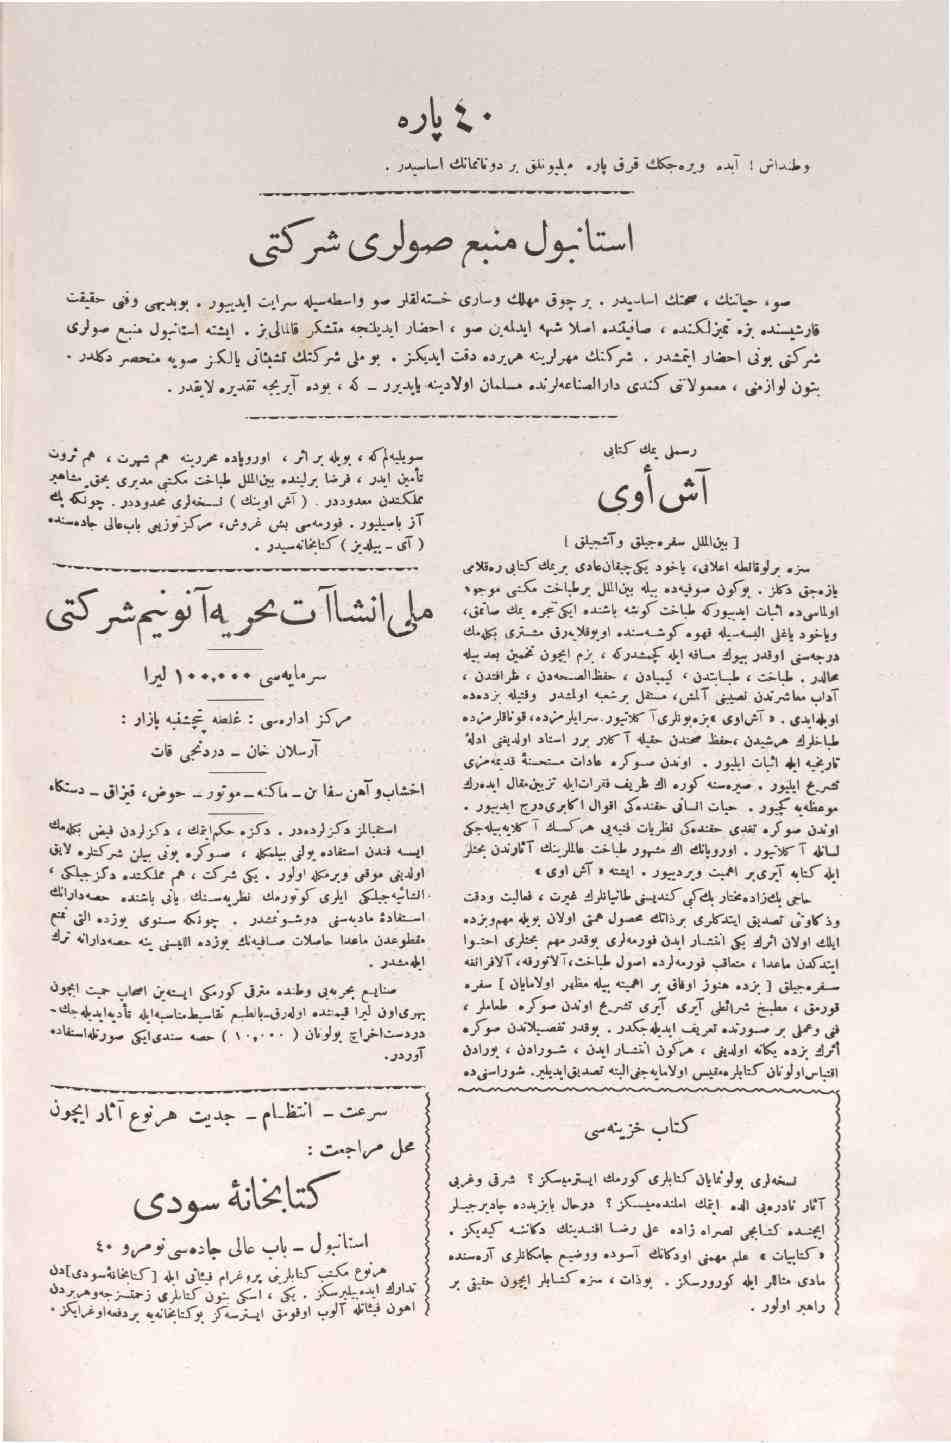 ٤٠ پاره
وطنداش ! آیده ویره‌جكك قرق پاره میلیونلق بر دوناتمانك اساسیدر .
استانبول منبع صولری شركتی
صو ، حیاتك ، صحتك اساسیدر . بر چوق مهلك وساری خسته‌لقلر صو واسطه‌سیله سرایت ایدییور . بوبدیهی وفنی حقیقت
قارشیسنده بزه تمیزلكنده ، صافیتنده اصلا شبهه ایدلمه‌ین صو ، احضار ایدیلنجه متشكر قالمالی‌یز . ایشته استانبول منبع صولری
شركتی بونی احضار ایتمشدر . شركتك مهرلرینه هریرده دقت ایدیكز . بو ملی شركتك تشبثاتی یالكز صویه منحصر دكلدر .
بتون لوازمنی ، معمولاتنی كندی دارالصناعه‌لرنده مسلمان اولادینه یاپدیرر ــ كه ، بوده آیریجه تقدیره لایقدر .
رسملی یمك كتابی
آش أوی
[ بین‌الملل سفره‌جیلق و آشجیلق ]
سزه برلوقانطه اعلانی ، یاخود یكی‌چیقان‌عادی بریمك كتابی ره‌قلامی
یازه‌جق دكلز . بوكون صوفیه‌ده بیله بین‌الملل برطباخت مكتبی موجود
اولماسی‌ده اثبات ایدییوركه طباخت كوشه باشنده ایكی تنجره یمك صاتمق ،
ویاخود یاغلی البسه‌سیله قهوه كوشه‌سنده اویوقلایه‌رق مشتری بكله‌مك
درجه‌سنی اوقدر بیوك مسافه ایله كچمشدركه ، بزم ایچون تخمین بعد بیله
محالدر . طباخت ، طبابتدن ، كیمیادن ، حفظ‌الصحه‌دن ، ظرافتدن ،
آداب معاشرتدن نصیبنی آلمش ، مستقل بر شعبه اولمشدر وقتیله بزده‌ده
اویله‌ایدی . « آش‌اوی » بزه‌بونلری آ كلاتیور . سرایلرمزده ، قوناقلرمزده
طباخلرك هرشیدن ، حفظ صحتدن حقیله آ كلار برر استاد اولدیغنی ادلهٔ
تاریخیه ایله اثبات ایلیور . اوندن صوكره عادات مستحسنهٔ قدیمه‌مزی
تشریح ایلیور . صیره‌سنه كوره اك ظریف فقرات‌ایله تزیین‌مقال ایده‌رك
موعظه‌یه كچیور . حیات انسانی حقنده‌كی اقوال اكابری‌درج ایدییور .
اوندن صوكره تغدی حقنده‌كی نظریات فنیه‌یی هركسك آ كلایه‌بیله‌جكی
لسانله آ كلاتیور . اوروپانك اك مشهور طباخت عالملرینك آثارندن بحثلر
ایله كتابه آیری‌بر اهمیت ویردییور . ایشته « آش اوی »
حاجی بك‌زاده‌مختار بك‌كی كندیسنی طانیانلرك غیرت ، فعالیت ودقت
وذكاوتنی تصدیق ایتدكلری برذاتك محصول همتی اولان بویله مهم‌وبزده
ایلك اولان اثرك یكی انتشار ایدن فورمه‌لری بوقدر مهم بحثلری احتوا
ایتدكدن ماعدا ، متعاقب فورمه‌لرده اصول طباخت ، آلاتورقه ، آلافرانغه
سفره‌جیلق [ بزده هنوز اوفاق بر اهمیته بیله مظهر اولامایان ] سفره
قورمق ، مطبخ شرائطی آیری آیری تشریح اوندن صوكره طعاملر ،
فنی وعملی بر صورتده تعریف ایدیله‌جكدر . بوقدر تفصیلاتدن صوكره
أثرك بزده یكانه اولدیغی ، هركون انتشار ایدن ، شورادن ، بورادن
اقتباس‌اولونان كتابلره‌مقیس اولامایه‌جغی‌البته تصدیق‌ایدیلیر . شوراسنی‌ده
سویلیه‌لم‌كه ، بویله بر اثر ، اوروپاده محررینه هم شهرت ، هم ثروت
تأمین ایدر ، فرضا برلینده بین‌الملل طباخت مكتبی مدیری بحق مشاهیر
مملكتدن معدوددر . ( آش اوینك ) نسخه‌لری محدوددر . چونكه پك
آز باصیلیور . فورمه‌سی بش غروش ، مركز توزیعی باب‌عالی جاده‌سنده
( آی ــ ییلدیز ) كتابخانه‌سیدر .
ملی انشاآت بحریه آنونیم شركتی
سرمایه‌سی ١٠٠،٠٠٠ لیرا
مركز اداره‌سی : غلطه پنجشنبه پازار :
آرسلان خان ــ دردنجی قات
اخشاب و آهن سفائن ــ ماكنه ــ موتور ــ حوض ، قیزاق ــ دستكاه
استقبالمز دكزلرده‌در . دكزه حكم‌ایتمك ، دكزلردن فیض بكله‌مك
ایسه فندن استفاده یولنی بیلمكله ، صوكره بونی بیلن شركتلره لایق
اولدیغی موقعی ویرمكله اولور . یكی شركت ، هم مملكتده دكزجیلكی ،
انشائیه‌جیلكی ایلری كوتورمك نظریه‌سنك یانی باشنده حصه‌دارانك
استفادهٔ مادیه‌سنی دوشونمشدر . چونكه سنوی یوزده التی تمتع
مقطوعدن ماعدا حاصلات صافیه‌نك یوزده اللیسنی ینه حصه‌دارانه ترك
ایله‌مشدر .
صنایع بحریه‌یی وطنده مترقی كورمكی ایسته‌ین اصحاب حمیت ایچون
بهری‌اون لیرا قیمتنده اوله‌رق‌بالطبع تقاسیط‌مناسبه‌ایله تأدیه‌ایدیله‌جك ــ
دردست‌اخراج بولونان ( ١٠,٠٠٠ ) حصه سندی‌ایكی صورتله‌استفاده
آوردر .
كتاب خزینه‌سی
نسخه‌لری بولونمایان كتابلری كورمك ایسترمیسكز ؟ شرقی وغربی
آثار نادره‌یی الده ایتمك املنده‌میسكز ؟ درحال بایزیدده چادیرجیلر
ایچنده كتابجی نصراه زاده علی رضا افندینك دكاننه كیدیكز .
« كتابیات » علم مهمنی اودكانك آسوده ووضیع جامكانلری آره‌سنده
مادی مثاللر ایله كورورسكز . بوذات ، سزه كتابلر ایچون حقیقی بر
راهبر اولور .
سرعت ــ انتظام ــ جدیت هر نوع آثار ایچون
محل مراجعت :
كتابخانهٔ سودی
استانبول ــ باب عالی جاده‌سی نومرو ٤٠
هرنوع مكتب كتابلرینی پروغرام فیئاتی ایله [كتابخانهٔ‌سودی]دن
تدارك ایده‌بیلیرسكز . یكی ، اسكی بتون كتابلری زحمتسزجه‌وهریردن
اهون فیئاتله آلوب اوقومق ایسترسه‌كز بوكتابخانه‌یه بردفعه‌اوغرایكز .